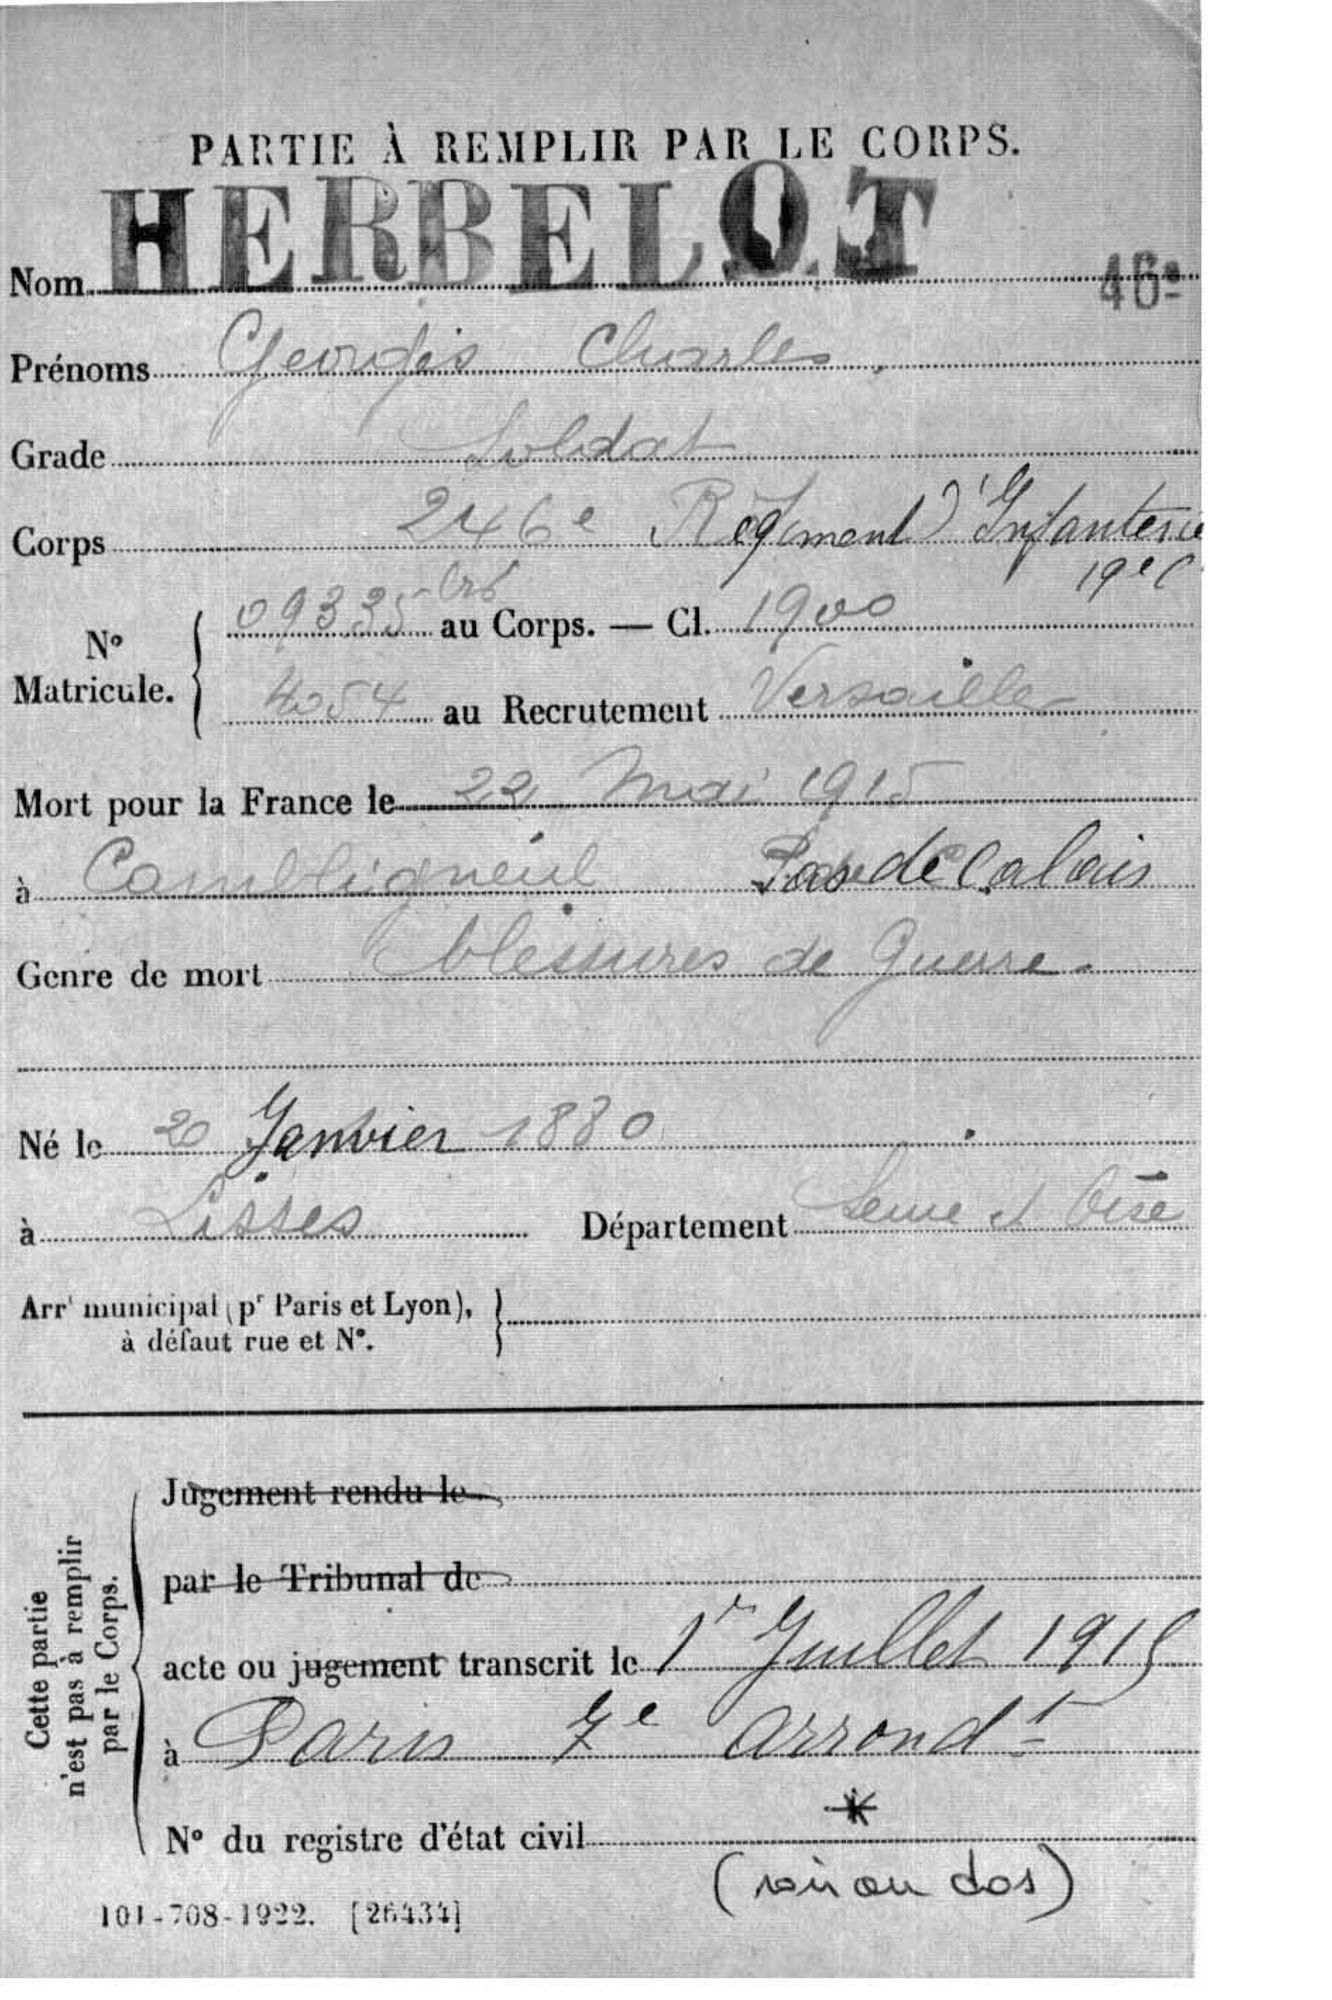 PARTIE À REMPLIR PAR LE CORPS.
Nom HERBELOT
46e
Prénoms Georges Charles
Grade Soldat
Corps 246e Régiment d'Infanterie
19e C
N° Matricule. 09335 au Corps. — Cl. 1900
4054 au Recrutement Versailles
Mort pour la France le 22 Mai 1915
à Cambligneul Pas de Calais
Genre de mort blessures de Guerre.
Né le 20 Janvier 1880
à Lisses Département Seine et Oise
Arrt municipal (pr Paris et Lyon),
à défaut rue et N°.
Cette partie
n'est pas à remplir
par le Corps.
Jugement rendu le
par le Tribunal de
acte ou jugement transcrit le 1r Juillet 1915
à Paris 7e arrondt
N° du registre d'état civil *
(voir au dos)
101-708-1922. [26434]